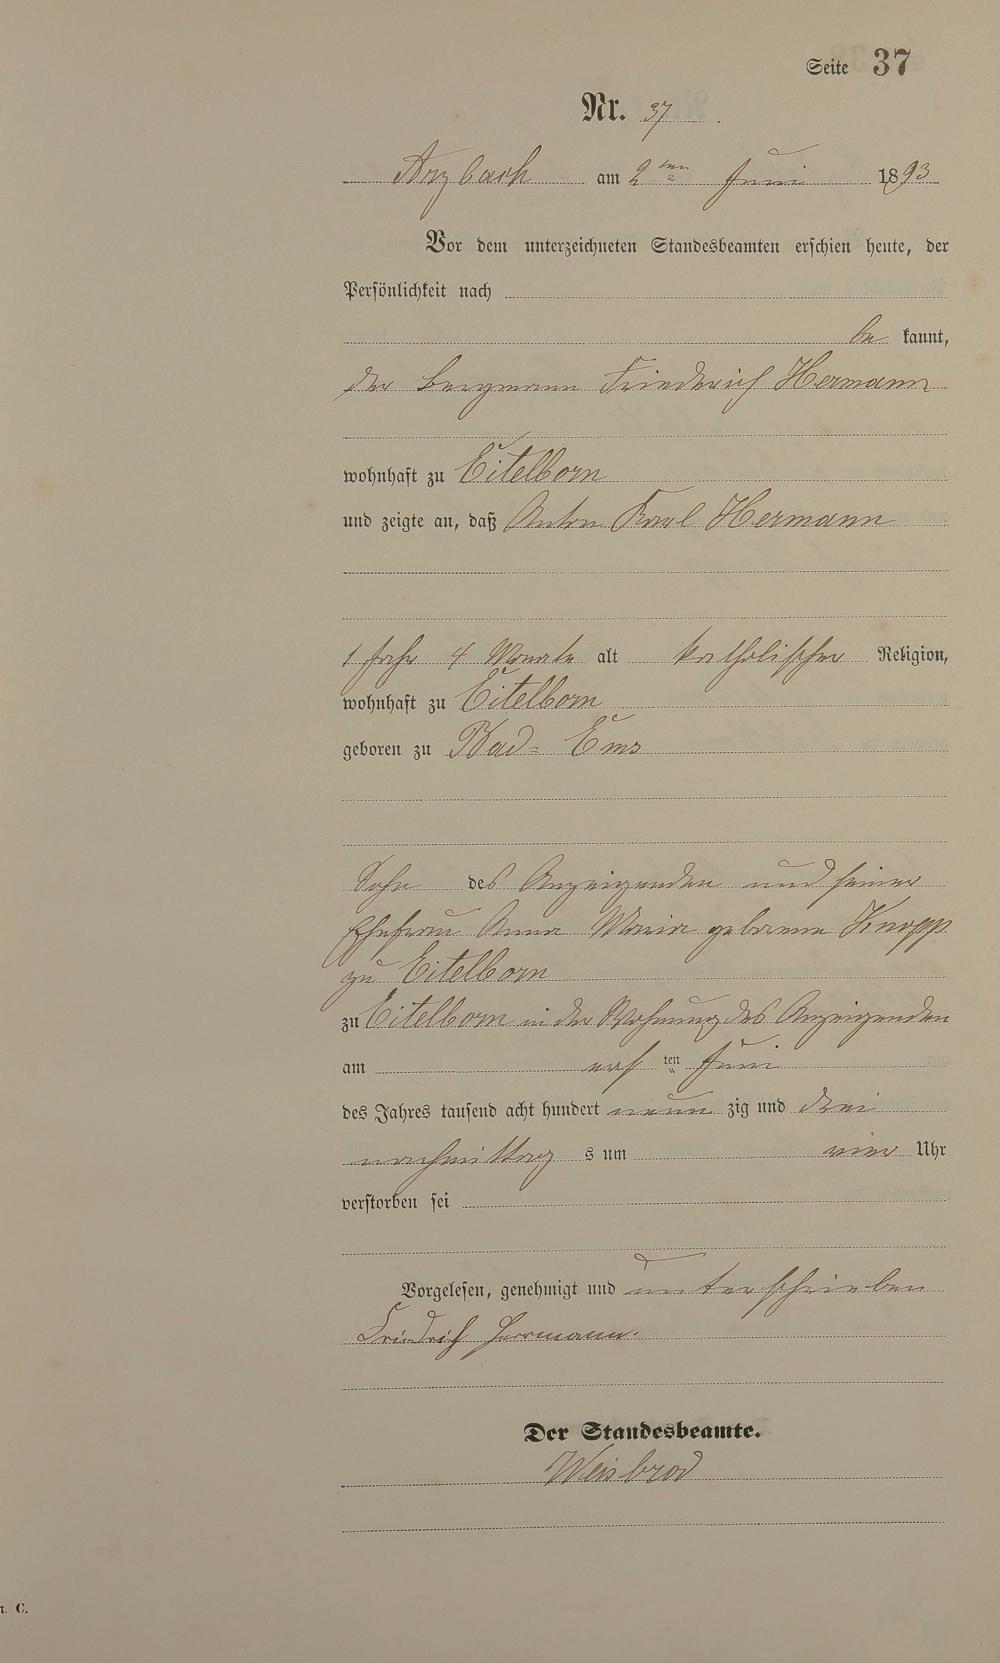 Seite 37
Nr. 37.
Arzbach am 2ten Juni 1893
Vor dem unterzeichneten Standesbeamten erschien heute, der
Persönlichkeit nach
be kannt,
der Bergmann Friederich Hermann
wohnhaft zu Eitelborn
und zeigte an, daß Anton Karl Hermann
1 Jahr 4 Monate alt katholischer Religion,
wohnhaft zu Eitelborn
geboren zu Bad-Ems
Sohn des Anzeigenden und seiner
Ehefrau Anna Maria geborene Knopp
zu Eitelborn
zu Eitelborn in der Wohnung des Anzeigenden
am ersten Juni
des Jahres tausend acht hundert neun zig und drei
nachmittag s um vier Uhr
verstorben sei
Vorgelesen, genehmigt und unterschrieben
Friedrich Herrmann.
Der Standesbeamte.
Weisbrod
r. C.